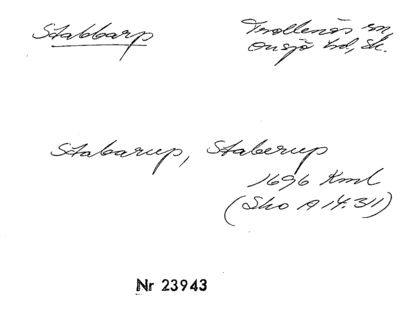 Stabbarp
Trollenäs sn,
Onsjö hd, Sk.
Stabarup, Staberup
1696 Kml
(Sko A 14:311)
Nr 23943